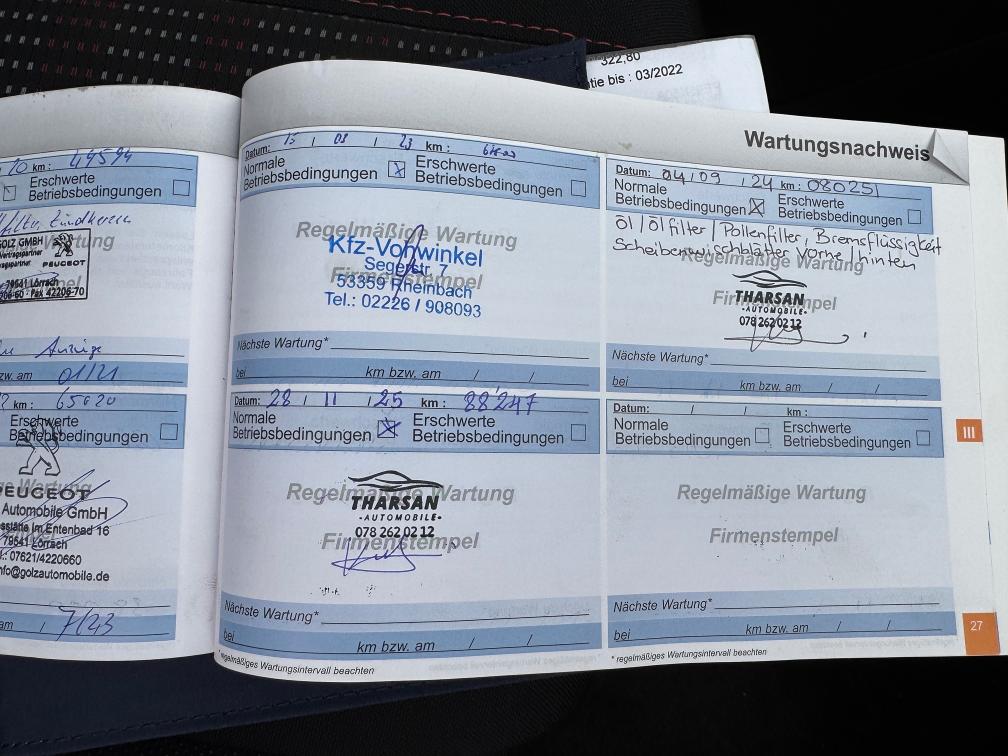 322,80
tie bis : 03/2022
Wartungsnachweis
20 km : 49594
Erschwerte
Betriebsbedingungen
GOLZ GMBH
PEUGEOT
79541 Lörrach
206-60 · Fax 42206-70
Anzeige
zw. am 01/21
km : 65020
Erschwerte
Betriebsbedingungen
PEUGEOT
Automobile GmbH
Im Entenbad 16
79541 Lörrach
.: 07621/4220660
nfo@golzautomobile.de
am 7/23
Datum: 15 / 03 / 23 km :
Normale
Betriebsbedingungen
Erschwerte
Betriebsbedingungen
Regelmäßige Wartung
Firmenstempel
Kfz-Vorwinkel
Segerstr. 7
53359 Rheinbach
Tel.: 02226 / 908093
Nächste Wartung*
bei km bzw. am / /
Datum: 04 / 09 / 24 km : 080251
Normale
Betriebsbedingungen
Erschwerte
Betriebsbedingungen
Öl / Ölfilter / Pollenfilter, Bremsflüssigkeit
Scheibenwischblätter vorne / hinten
Regelmäßige Wartung
Firmenstempel
THARSAN
-AUTOMOBILE-
078 262 02 12
Nächste Wartung*
bei km bzw. am / /
Datum: 28 / 11 / 25 km : 88'247
Normale
Betriebsbedingungen
Erschwerte
Betriebsbedingungen
Regelmäßige Wartung
Firmenstempel
THARSAN
-AUTOMOBILE-
078 262 02 12
Nächste Wartung*
bei km bzw. am / /
* regelmäßiges Wartungsintervall beachten
Datum: / / km :
Normale
Betriebsbedingungen
Erschwerte
Betriebsbedingungen
Regelmäßige Wartung
Firmenstempel
Nächste Wartung*
bei km bzw. am / /
* regelmäßiges Wartungsintervall beachten
III
27